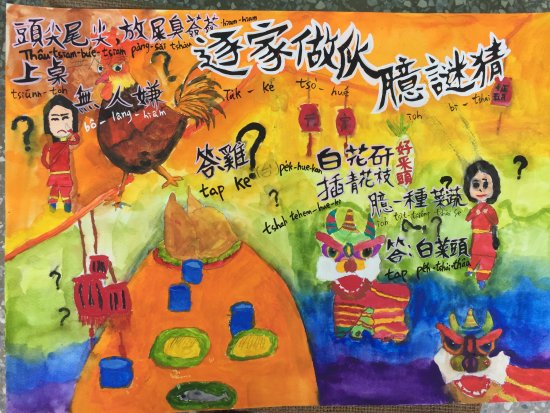 頭尖尾尖,放屎臭薟薟
hiam-hiam
Thâu-tsiam-bué-tsiam pàng-sái tshàu
上桌 無人嫌
tsiūnn-toh bô-lâng-hiâm
逐家做伙
ta̍k-ke tsò-hué
臆謎猜
ioh bī-tshai
答雞?
tap ke
白花矸
pe̍h-hue-kan
插青花枝
臆一種菜蔬
答:白菜頭
tap pe̍h-tshài-thâu
好彩頭